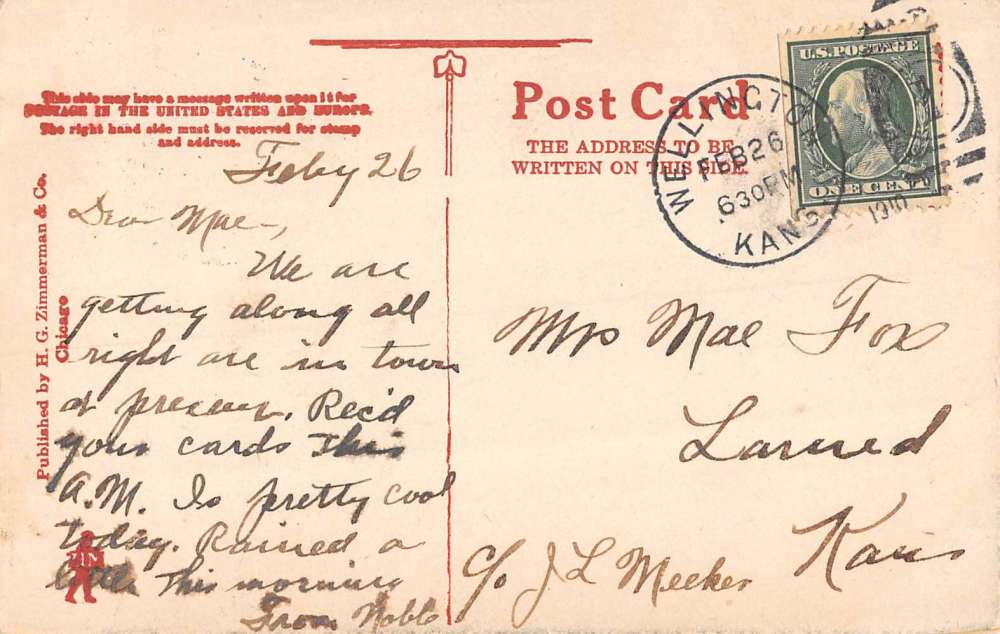 This side may have a message written upon it for
POSTAGE IN THE UNITED STATES AND EUROPE.
The right hand side must be reserved for stamp
and address.
Feby 26
Dear Mae,
We are
getting along all
right are in town
at present. Rec'd
your cards this
A.M. Is pretty cool
today. Rained a
little this morning
From Noble
Published by H. G. Zimmerman & Co.
Chicago
Post Card
THE ADDRESS TO BE
WRITTEN ON THIS SIDE.
WELLINGTON
FEB 26
630 PM
KANS
1910
U.S. POSTAGE
ONE CENT
Mrs Mae Fox
Larned
Kans
c/o J L Meeker